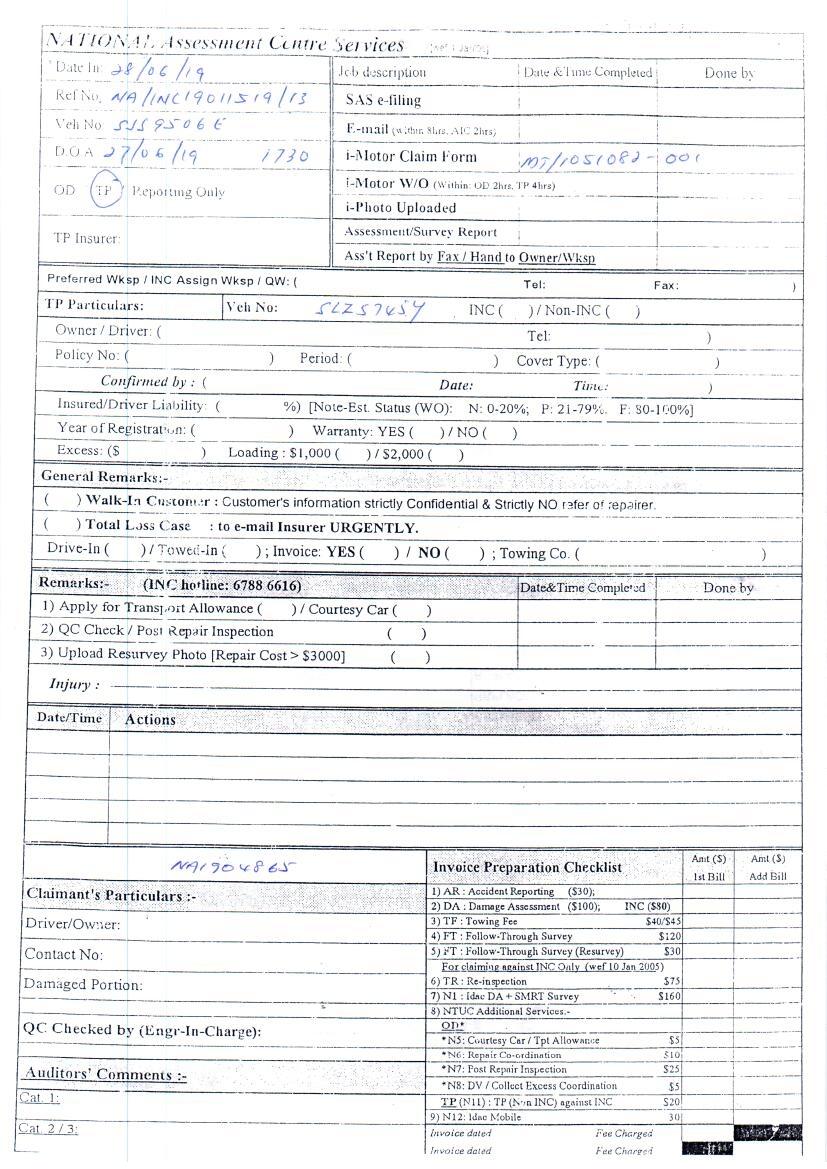 NATIONAL Assessment Centre Services [wef 1 Jan/05]
Date In: 28/06/19
Job description Date &Time Completed Done by
Ref No. NA/INC19011519/13
SAS e-filing
Veh No. SJS9506E
E-mail (within 8hrs, AIC 2hrs)
D.O.A 27/06/19 1730
i-Motor Claim Form MT/1051082-001
i-Motor W/O (Within: OD 2hrs, TP 4hrs)
OD TP Reporting Only
i-Photo Uploaded
TP Insurer:
Assessment/Survey Report
Ass't Report by Fax / Hand to Owner/Wksp
Preferred Wksp / INC Assign Wksp / QW: ( Tel: Fax: )
TP Particulars: Veh No: SLZ5745Y INC ( ) / Non-INC ( )
Owner / Driver: ( Tel: )
Policy No: ( ) Period: ( ) Cover Type: ( )
Confirmed by : ( Date: Time: )
Insured/Driver Liability: ( %) [Note-Est. Status (WO): N: 0-20%; P: 21-79%. F: 80-100%]
Year of Registration: ( ) Warranty: YES ( ) / NO ( )
Excess: ($ ) Loading : $1,000 ( ) / $2,000 ( )
General Remarks:-
( ) Walk-In Customer : Customer's information strictly Confidential & Strictly NO refer of repairer.
( ) Total Loss Case : to e-mail Insurer URGENTLY.
Drive-In ( ) / Towed-In ( ) ; Invoice: YES ( ) / NO ( ) ; Towing Co. ( )
Remarks:- (INC hotline: 6788 6616) Date&Time Completed Done by
1) Apply for Transport Allowance ( ) / Courtesy Car ( )
2) QC Check / Post Repair Inspection ( )
3) Upload Resurvey Photo [Repair Cost > $3000] ( )
Injury :
Date/Time Actions
NA1904865
Invoice Preparation Checklist Amt ($) 1st Bill Amt ($) Add Bill
Claimant's Particulars :-
Driver/Owner:
Contact No:
Damaged Portion:
QC Checked by (Engr-In-Charge):
Auditors' Comments :-
Cat. 1:
Cat. 2 / 3:
1) AR : Accident Reporting ($30);
2) DA : Damage Assessment ($100); INC ($80)
3) TF : Towing Fee $40/$45
4) FT : Follow-Through Survey $120
5) FT : Follow-Through Survey (Resurvey) $30
For claiming against INC Only (wef 10 Jan 2005)
6) TR : Re-inspection $75
7) N1 : Idac DA + SMRT Survey $160
8) NTUC Additional Services:-
OD*
*N5: Courtesy Car / Tpt Allowance $5
*N6: Repair Co-ordination $10
*N7: Post Repair Inspection $25
*N8: DV / Collect Excess Coordination $5
TP (N11) : TP (Non INC) against INC $20
9) N12: Idac Mobile 30
Invoice dated Fee Charged
Invoice dated Fee Charged